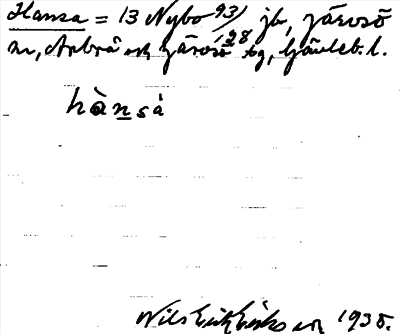 Hansa = 13 Nybo 93/128 jb, Järvsö
sn, Arbrå och Järvsö tg, Gävleb. l.
hànsà
Nils Erik Eriksson 1935.